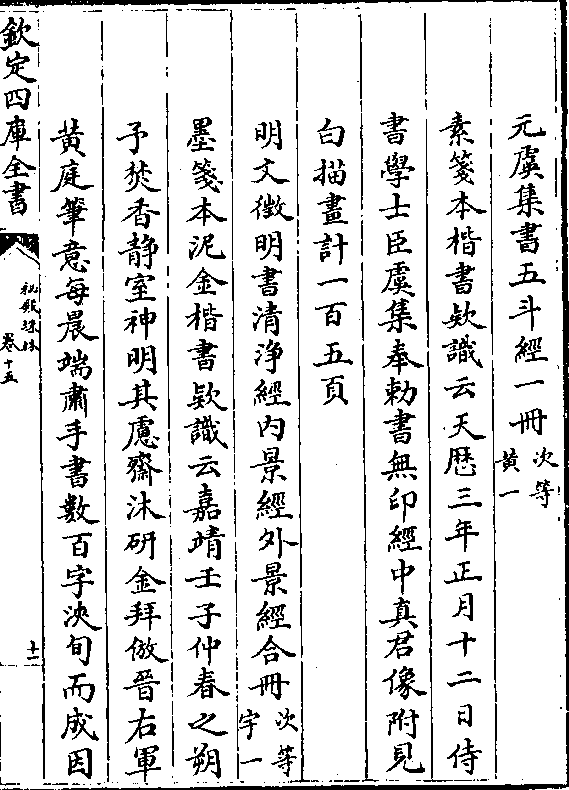 元虞集書五斗經一冊次等黄一
素箋本楷書欵識云天歴三年正月十二日侍
書學士臣虞集奉勅書無印經中真君像附見
白描畫計一百五頁
明文徵明書清浄經内景經外景經合冊次等宇一
墨箋本泥金楷書欵識云嘉靖壬子仲春之朔
予焚香静室神明其慮齋沐研金拜倣晉右軍
黄庭筆意每晨端肅手書數百字浹旬而成因
欽定四庫全書
秘殿珠林
卷十五
十一